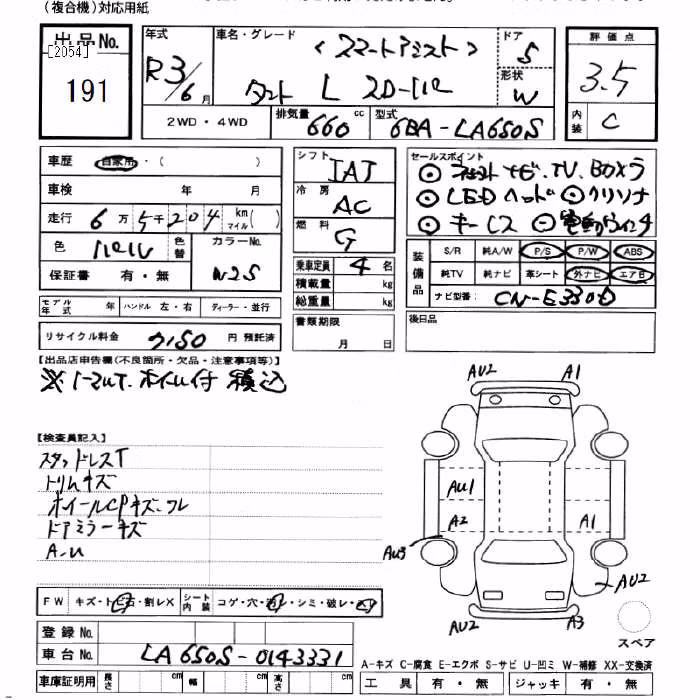 （複合機）対応用紙
出品No.
[2054]
191
年式 R3/6月
車名・グレード 〈スマートアシスト〉
タント L 2D-
ドア 5
形状 W
2WD・4WD
排気量 660 cc
型式 6BA-LA650S
評価点
3.5
内装 C
車歴 自家用・( )
車検 年 月
走行 6万5千204 km マイル( )
色 パール 色替
カラーNo. W25
保証書 有・無
モデル年式 年 ハンドル 左・右 ディーラー・並行
リサイクル料金 円 預託済
シフト IAT
冷房 AC
燃料 G
乗車定員 4名
積載量 kg
総重量 kg
書類期限
月 日
セールスポイント
ナビ.TV.Bカメラ
LEDヘッド クリソナ
キーレス 電動
装備品
S/R 純A/W P/S P/W ABS
純TV 純ナビ 革シート 外ナビ エアB
ナビ型番: CN-E330D
後日品
【出品店申告欄(不良箇所・欠品・注意事項等)】
※ノーマルT.ホイル付 積込
【検査員記入】
スタッドレスT
トリムキズ
ホイールCPキズ.ワレ
ドアミラーキズ
A-U
AU2 A1
AU1
A2 A1
AU3
AU2
AU2 A3
スペア
FW キズ・トビ石・割レX
シート内装 コゲ・穴・汚レ・シミ・破レ・
登録No.
車台No. LA650S-0143331
車庫証明用 長さ cm 幅 cm 高さ cm
A-キズ C-腐食 E-エクボ S-サビ U-凹ミ W-補修 XX-交換済
工具 有・無 ジャッキ 有・無